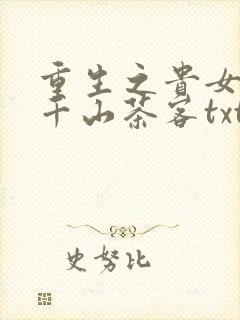 重生之貴女
千山茶客txt
史努比